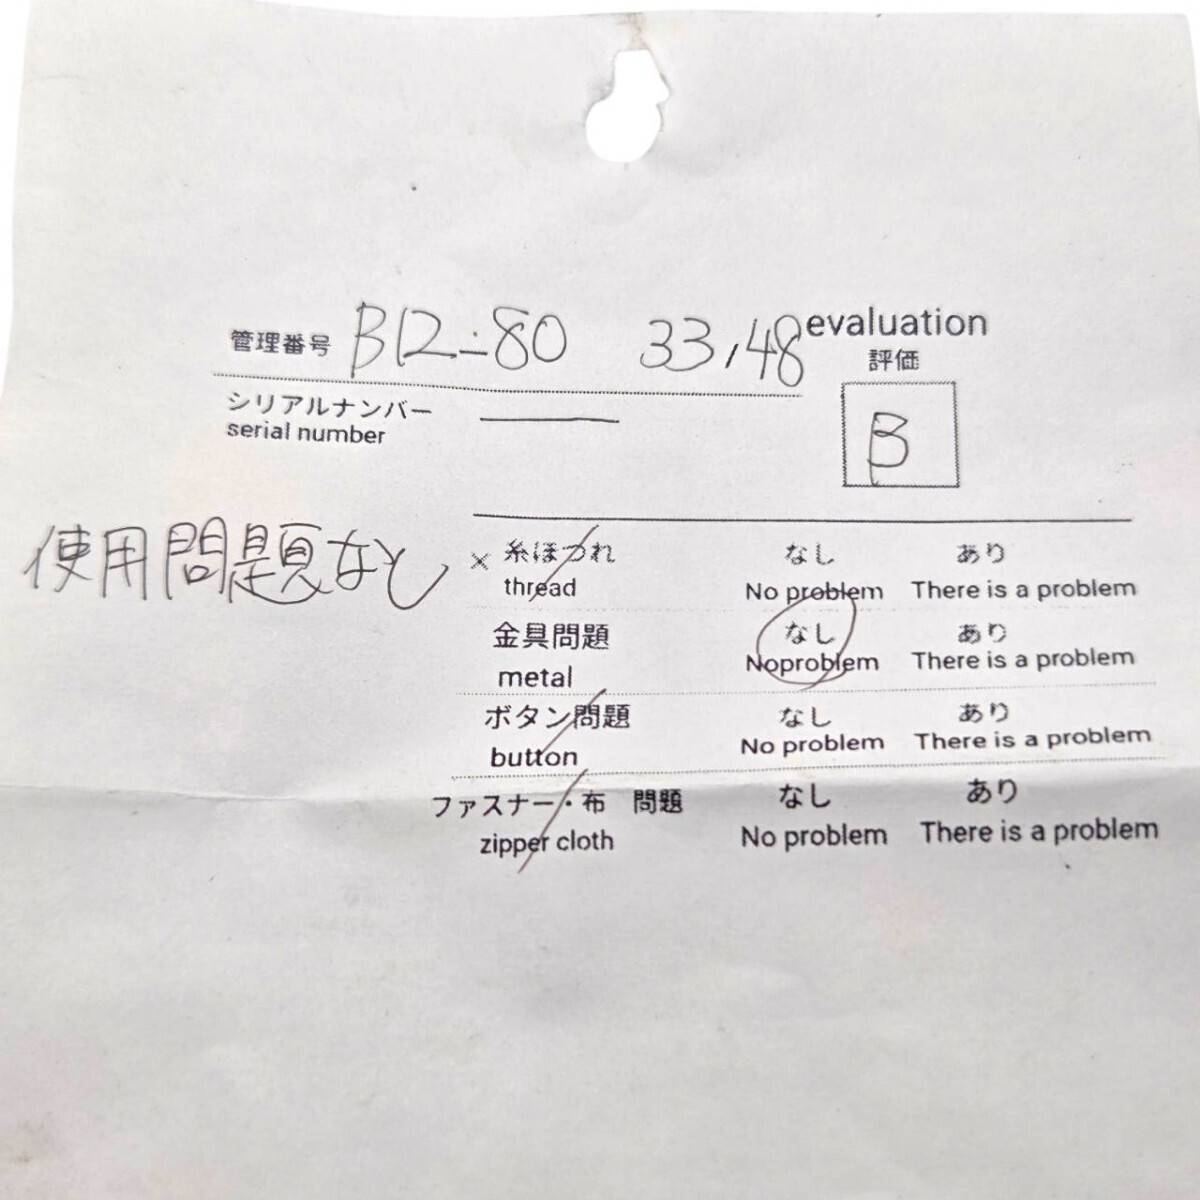 管理番号 B12-80 33,48
evaluation
評価
B
シリアルナンバー
serial number
使用問題なし
× 糸ほつれ なし あり
thread No problem There is a problem
金具問題 なし あり
metal Noproblem There is a problem
ボタン問題 なし あり
button No problem There is a problem
ファスナー・布 問題 なし あり
zipper cloth No problem There is a problem